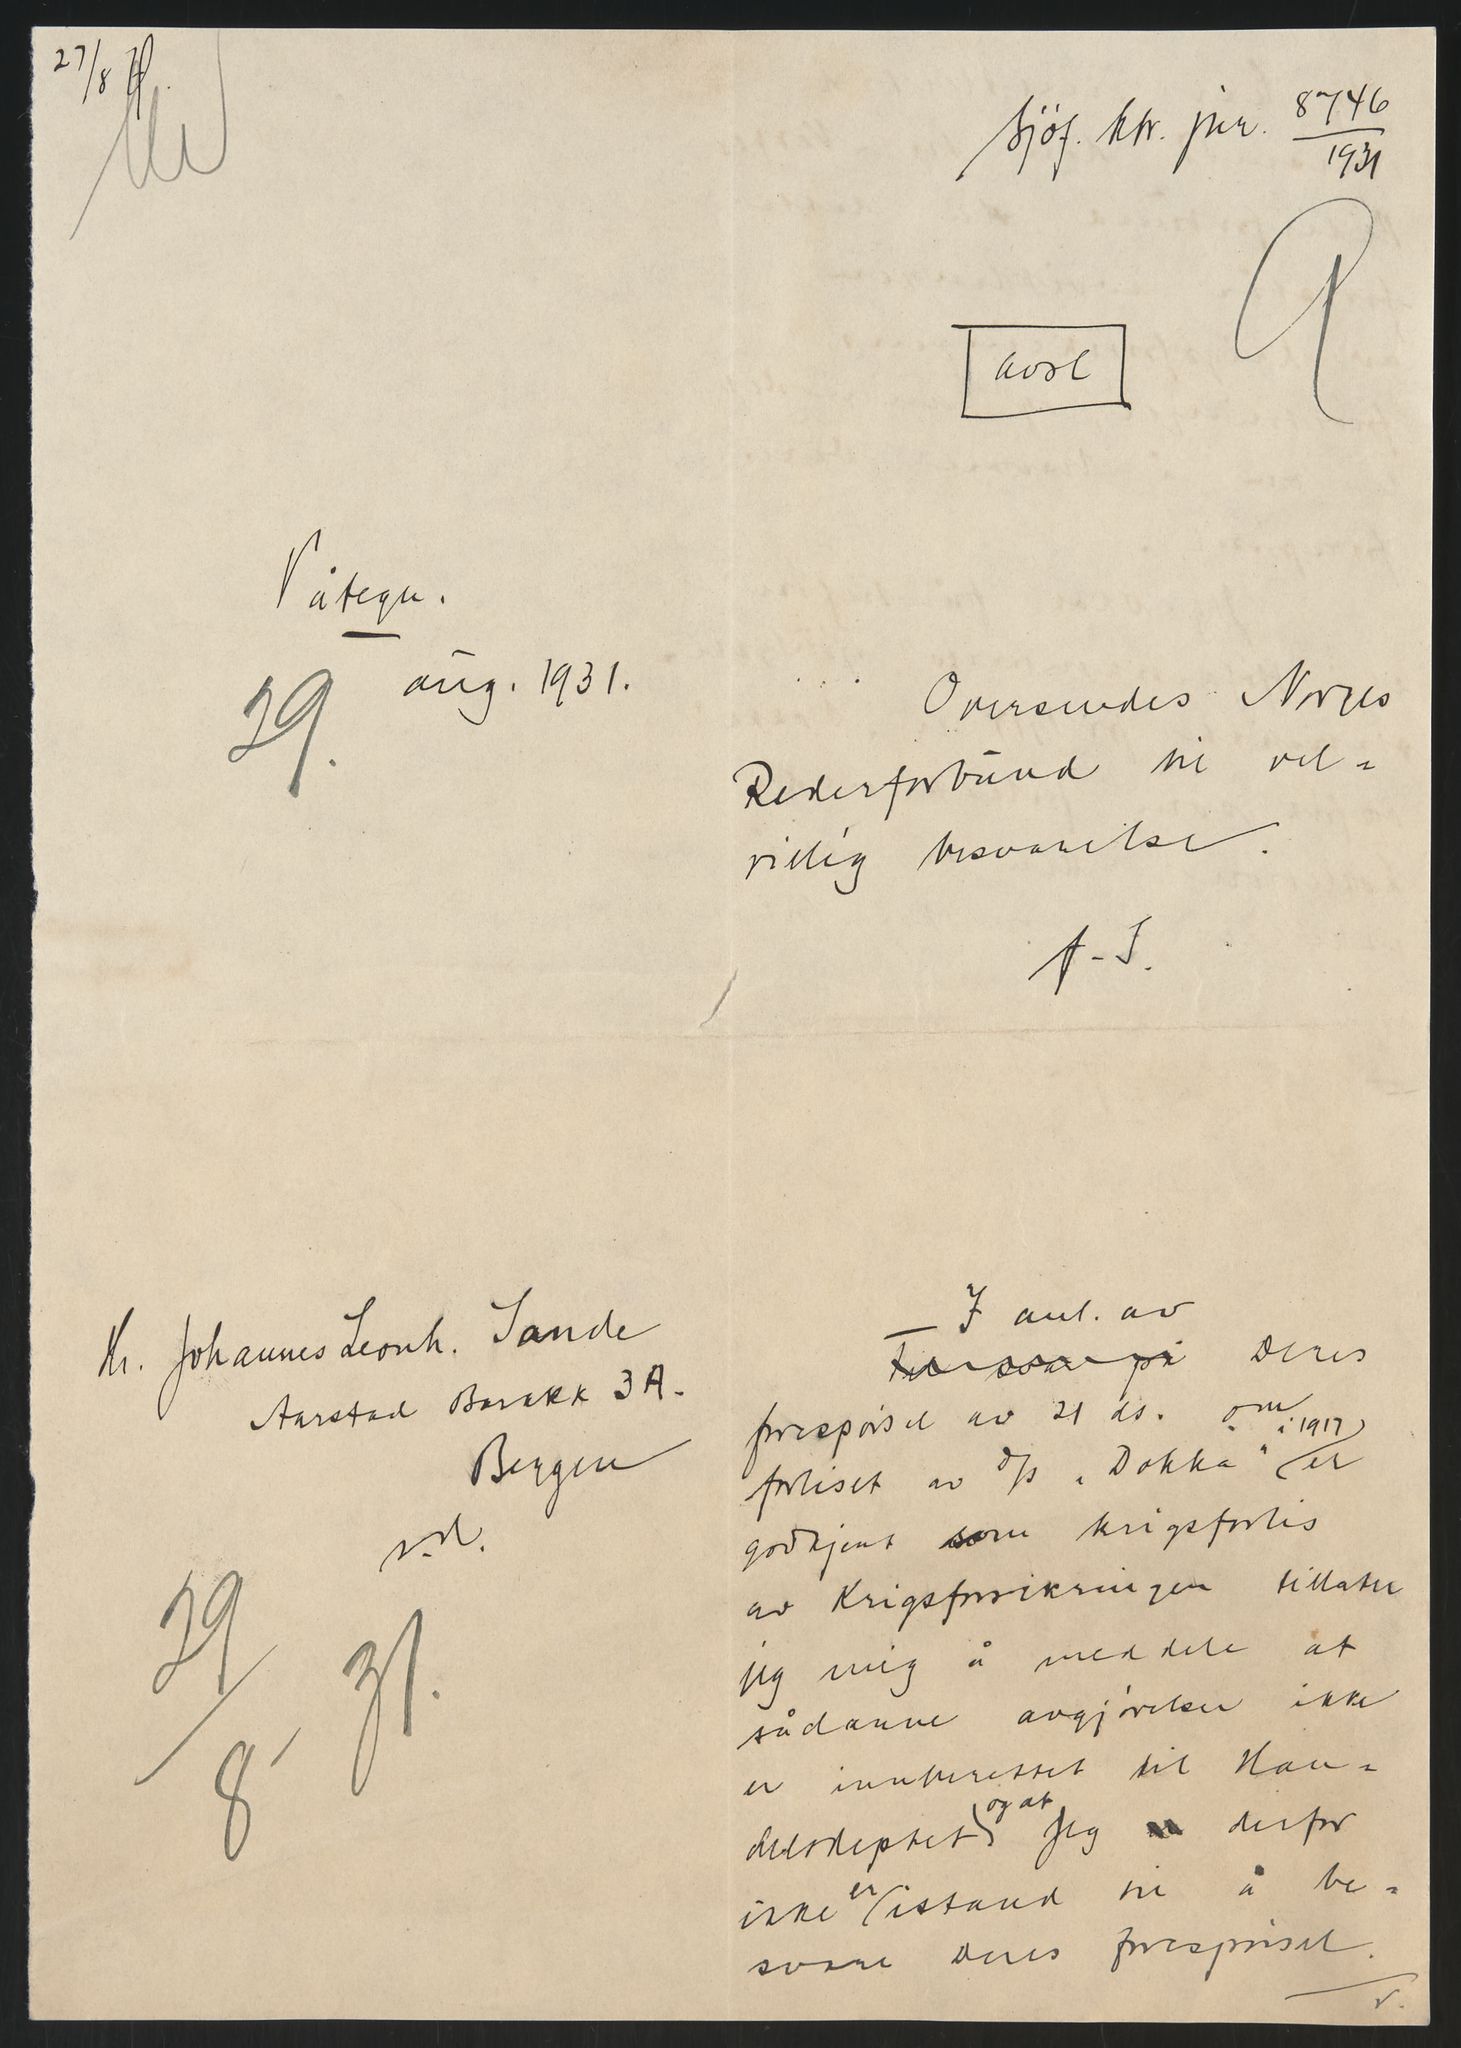 27/8
Sjöf. ktr. jnr. 8746/1931
avsl
Påtegn.
29. aug. 1931.
Oversendes Norges
Rederforbund til vel-
villig besvarelse.
Hr. Johannes Leonh. Sande
Aarstad Barakk 3A.
Bergen
29/8 31.
I anl. av
Til svar på Deres
forespörsel av 21 ds. om
forliset av d/s "Dokka" i 1917 er
godkjent som krigsforlis
av Krigsforsikringen tillater
jeg mig å meddele at
sådanne avgjörelser ikke
er innberettet til Han-
delsdeptet og at jeg derfor
ikke er istand til å be-
svare Deres forespörsel.